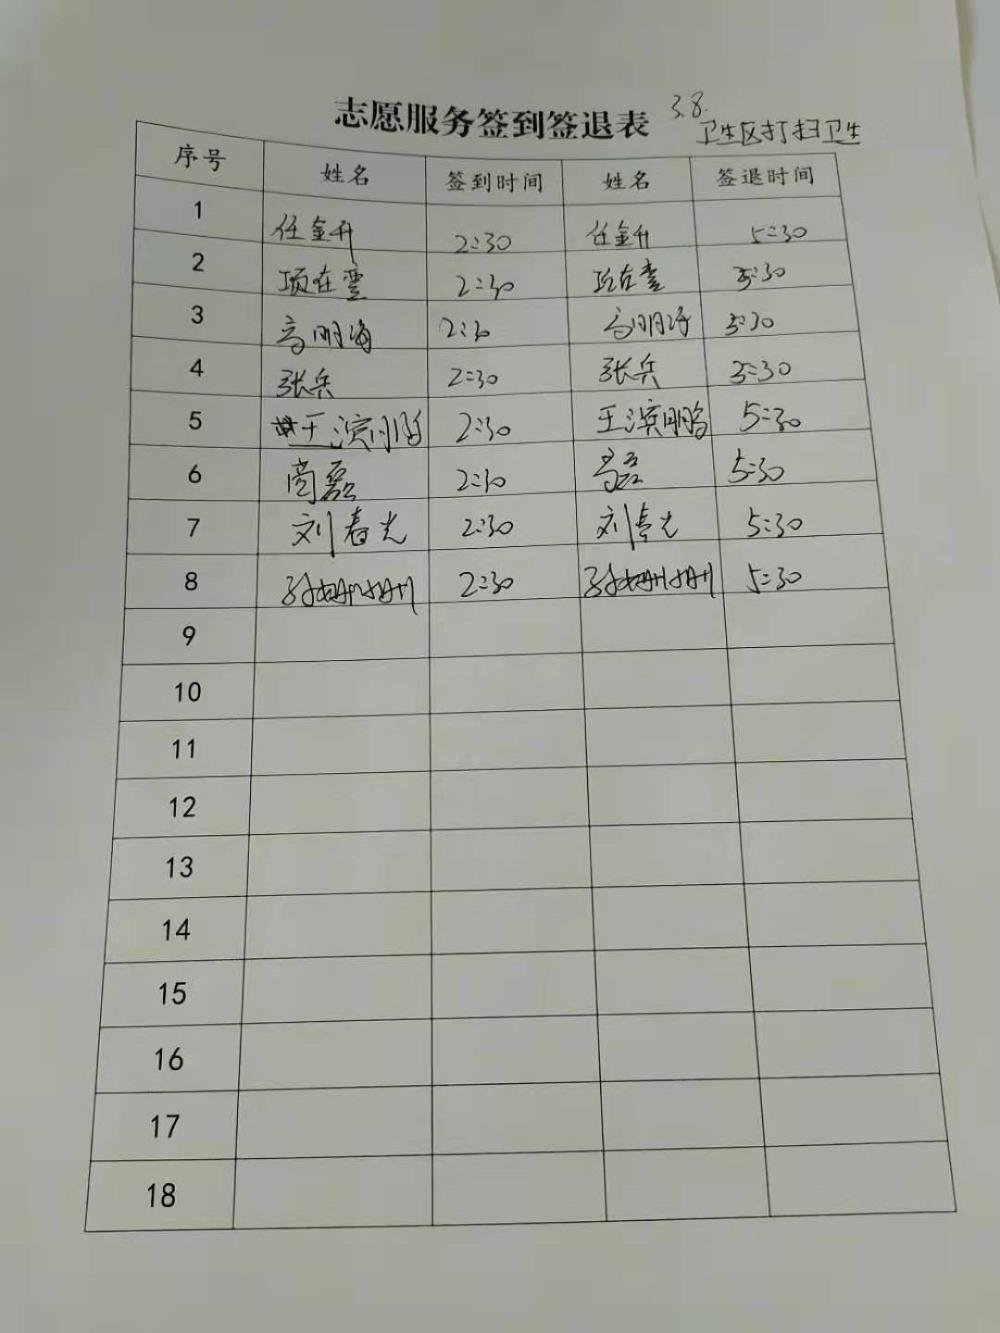 志愿服务签到签退表 3.8.
卫生区打扫卫生
序号 姓名 签到时间 姓名 签退时间
1 任金升 2:30 任金升 5:30
2 项在雲 2:30 项在雲 5:30
3 高明海 2:30 高明海 5:30
4 张兵 2:30 张兵 5:30
5 王滨鹏 2:30 王滨鹏 5:30
6 商磊 2:30 商磊 5:30
7 刘春光 2:30 刘春光 5:30
8 孙姗姗 2:30 孙姗姗 5:30
9
10
11
12
13
14
15
16
17
18